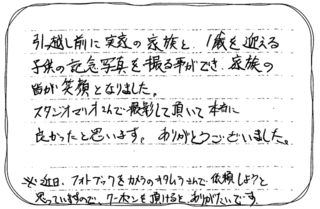 引っ越し前に実家の家族と、1歳を迎える
子供の記念写真を撮る事ができ、家族の
皆が笑顔となりました。
スタジオマリオさんで撮影して頂いて本当に
良かったと思います。ありがとうございました。
※近日、フォトブックをカメラのキタムラさんで依頼しようと
思っていますので、クーポンを頂けると、ありがたいです。